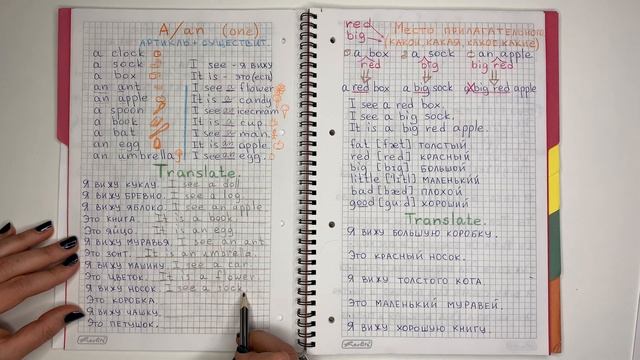 A/an (one)
АРТИКЛЬ + СУЩЕСТВИТ.
a clock
a sock
a box
an ant
an apple
a spoon
a book
a bat
an egg
an umbrella
I see - я вижу
It is - это (есть)
I see a flower
It is a candy
I see an icecream
It is a cup.
I see a man.
It is an apple.
I see an egg.
Translate.
Я ВИЖУ КУКЛУ. I see a doll
Я ВИЖУ БРЕВНО. I see a log
Я ВИЖУ ЯБЛОКО. I see an apple
ЭТО КНИГА. It is a book.
ЭТО ЯЙЦО. It is an egg.
Я ВИЖУ МУРАВЬЯ. I see an ant
ЭТО ЗОНТ. It is an umbrella.
Я ВИЖУ МАШИНУ. I see a car
ЭТО ЦВЕТОК. It is a flower
Я ВИЖУ НОСОК. I see a sock
ЭТО КОРОБКА.
Я ВИЖУ ЧАШКУ.
ЭТО ПЕТУШОК.
red
big
МЕСТО ПРИЛАГАТЕЛЬНОГО
(КАКОЙ, КАКАЯ, КАКОЕ, КАКИЕ)
a box a sock an apple
red big big red
a red box a big sock a big red apple
I see a red box.
I see a big sock.
It is a big red apple.
fat [fæt] ТОЛСТЫЙ
red [red] КРАСНЫЙ
big [big] БОЛЬШОЙ
little [litl] МАЛЕНЬКИЙ
bad [bæd] ПЛОХОЙ
good [gu:d] ХОРОШИЙ
Translate.
Я ВИЖУ БОЛЬШУЮ КОРОБКУ.
ЭТО КРАСНЫЙ НОСОК.
Я ВИЖУ ТОЛСТОГО КОТА.
ЭТО МАЛЕНЬКИЙ МУРАВЕЙ.
Я ВИЖУ ХОРОШУЮ КНИГУ.